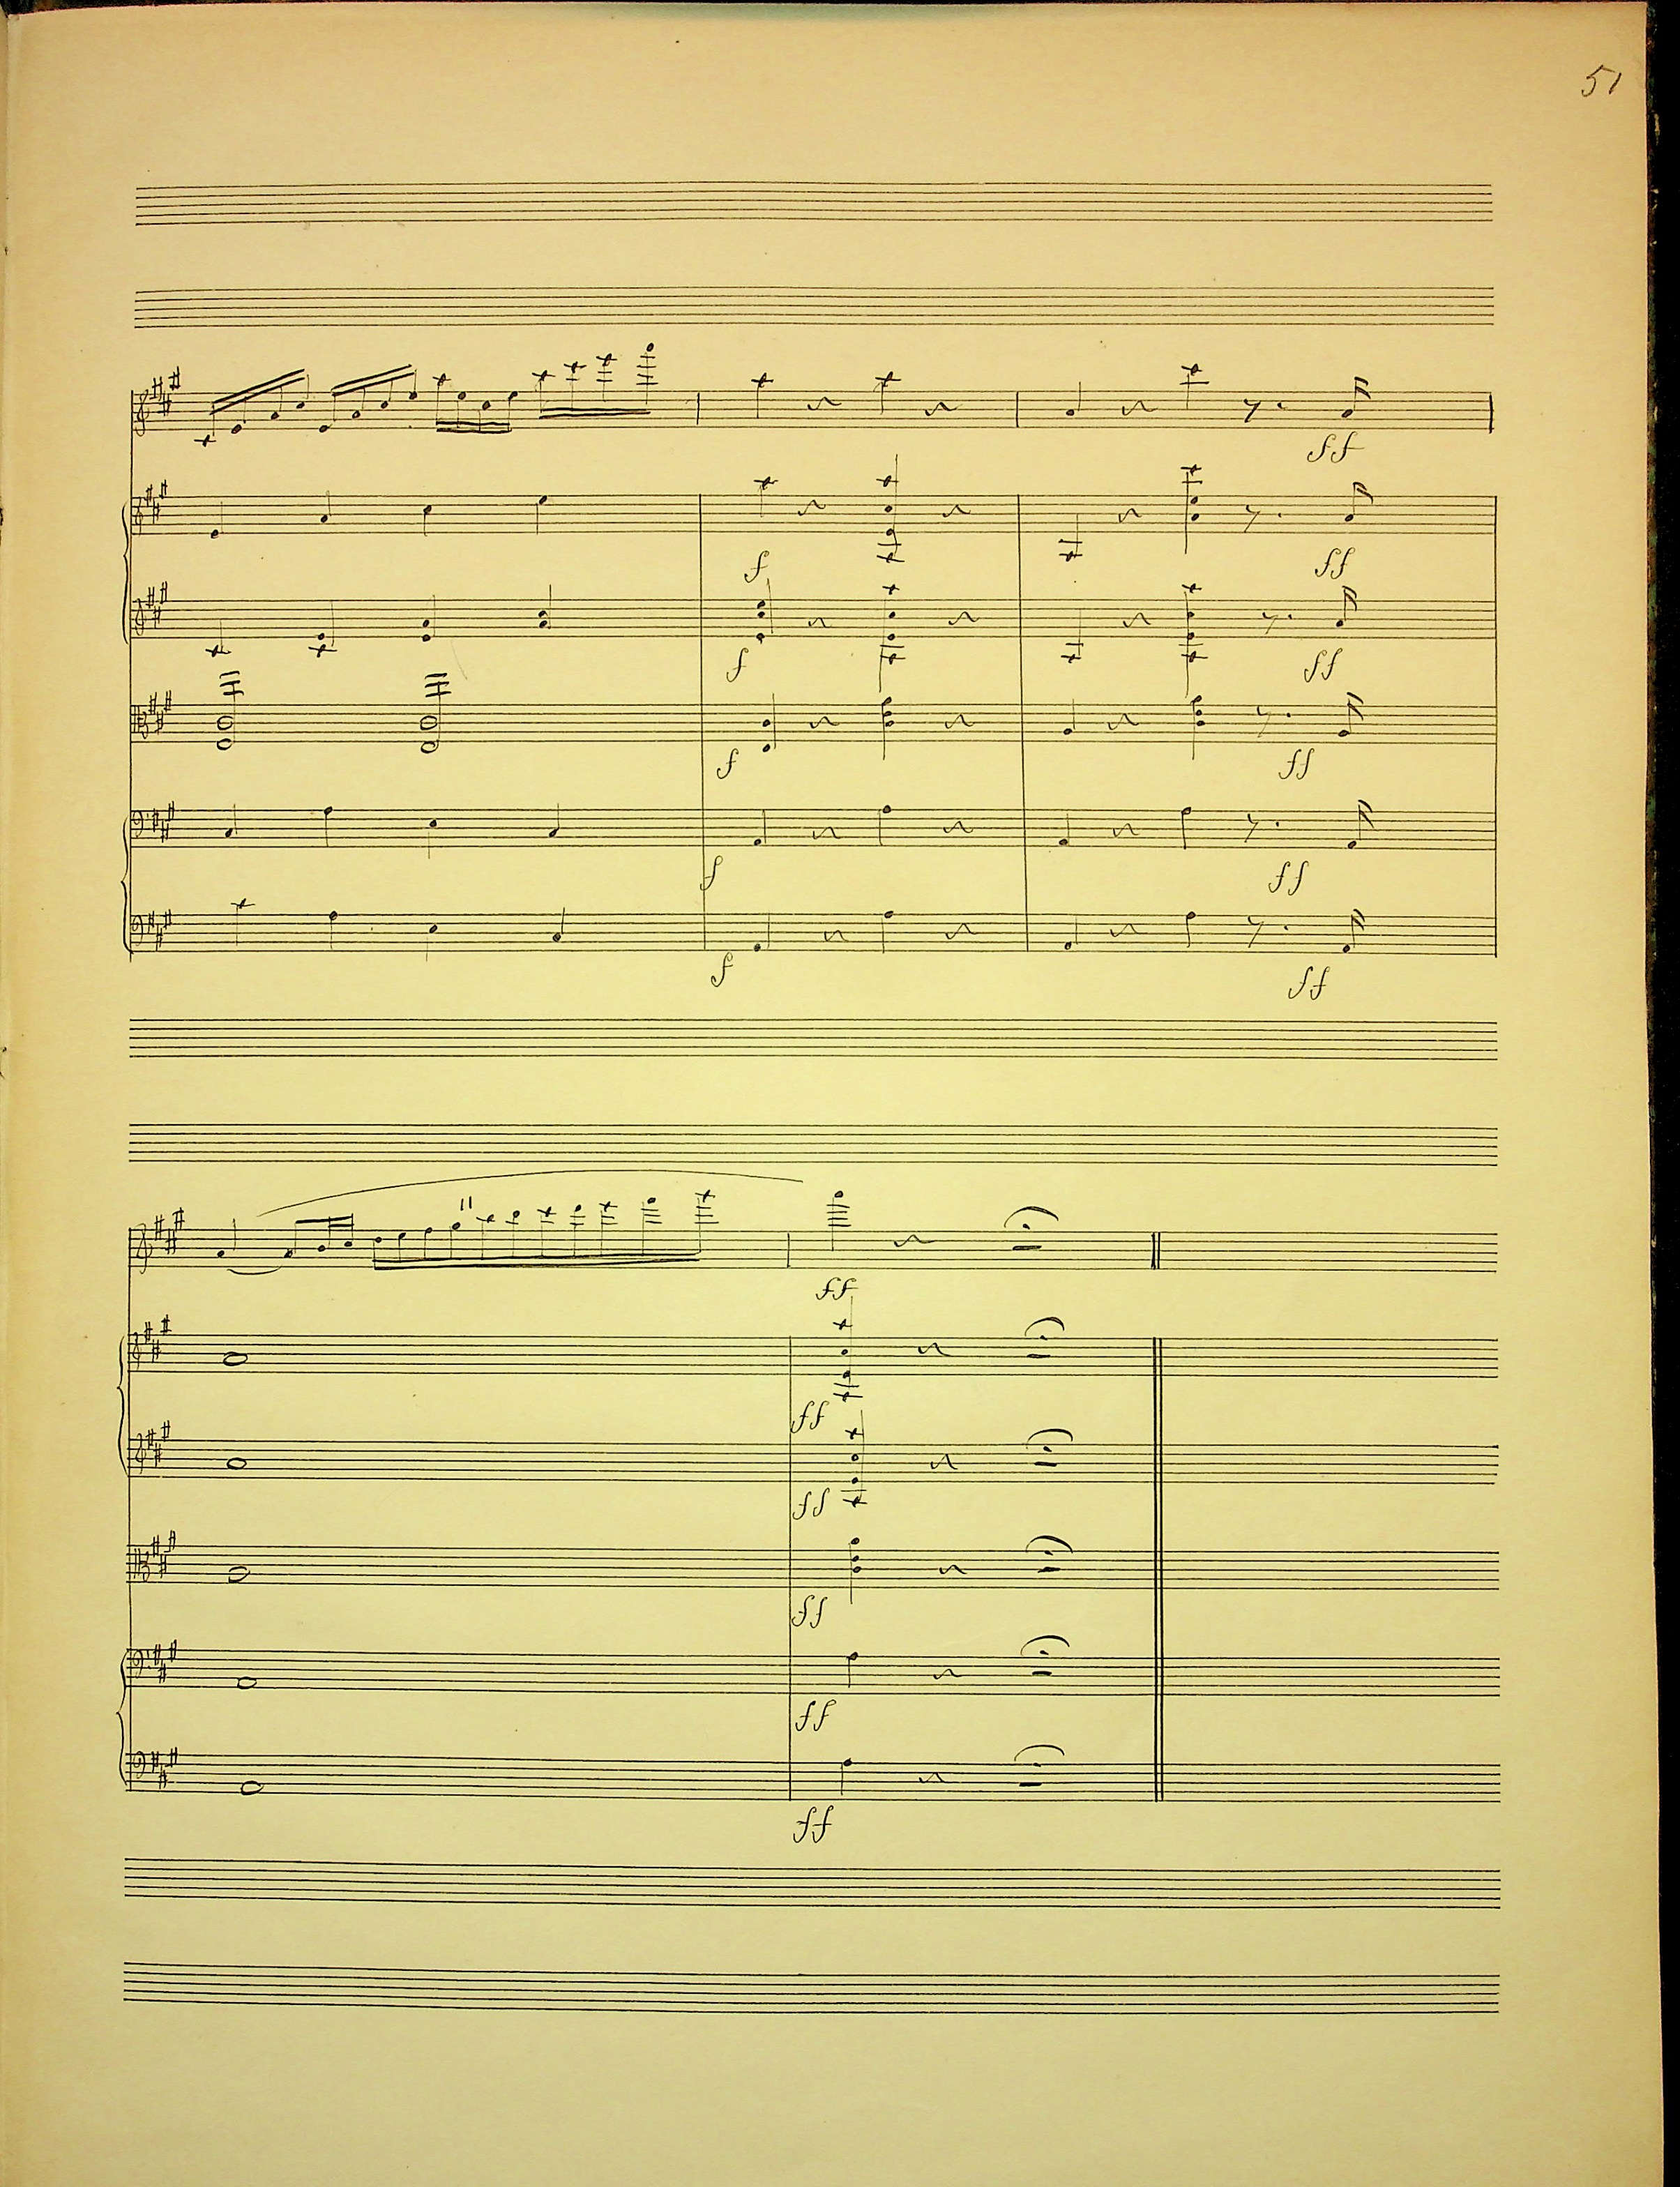 51
ff
f
ff
f
ff
f
ff
f
ff
f
ff
11
ff
ff
ff
ff
ff
ff